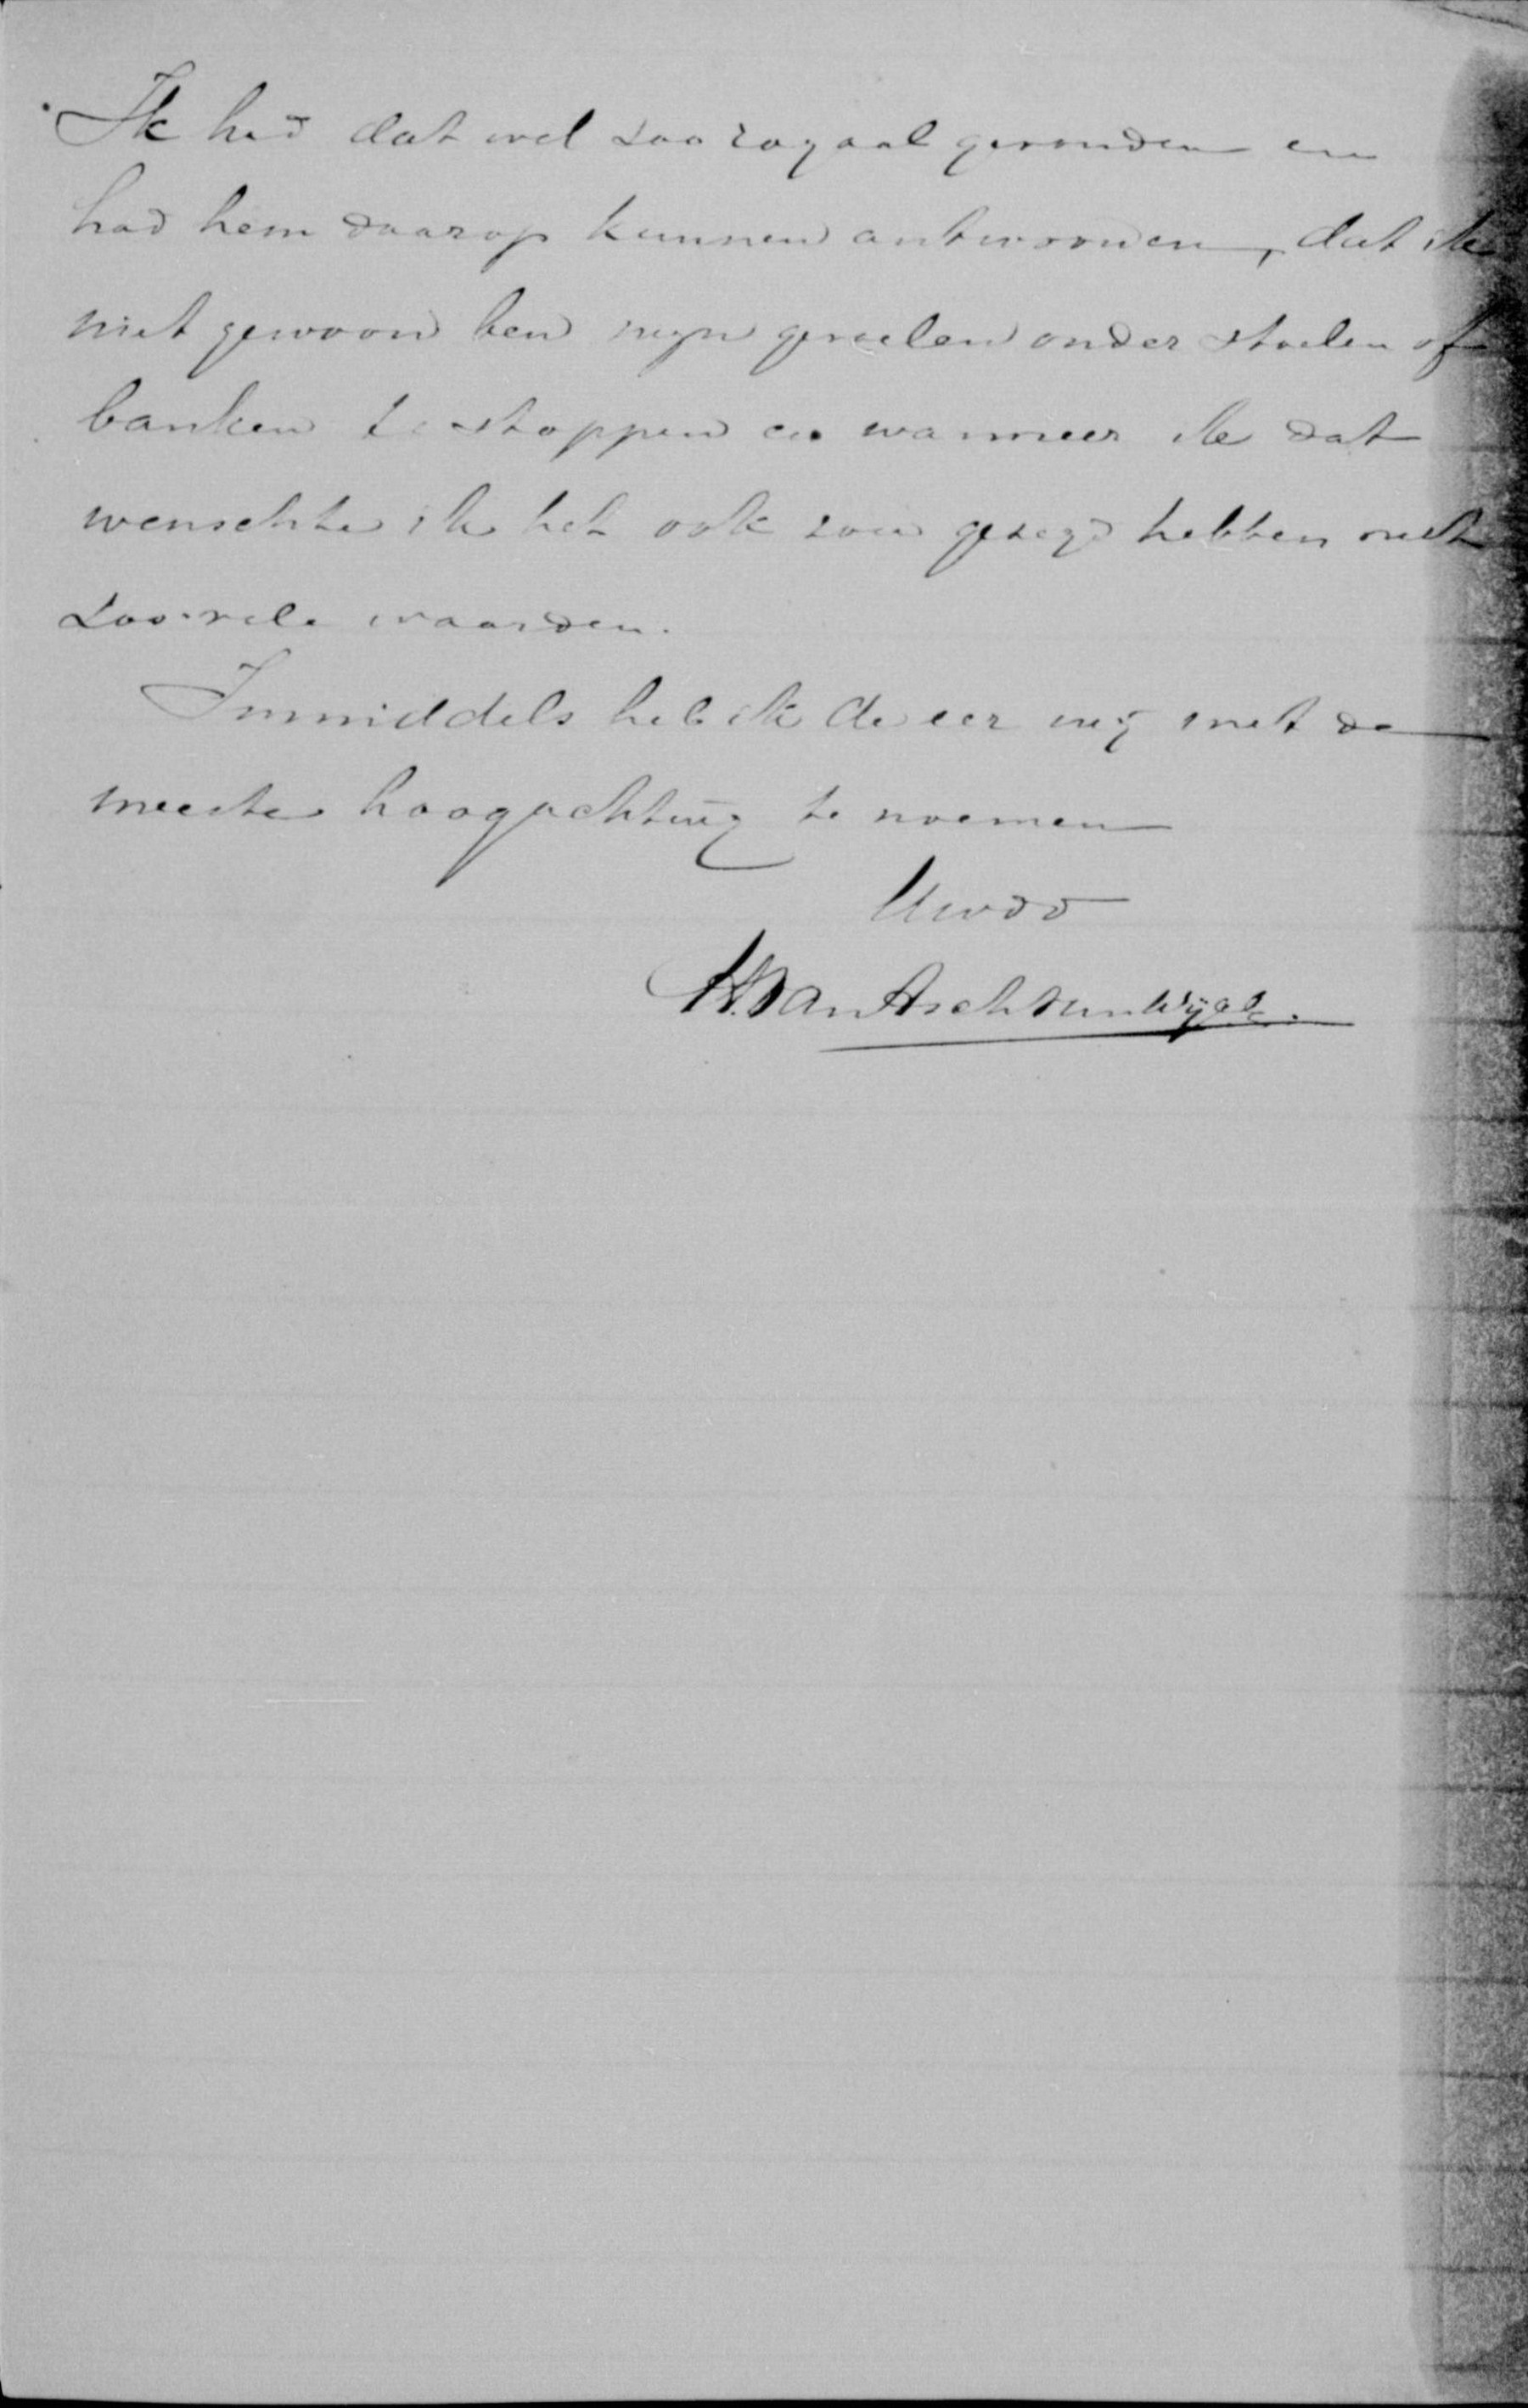 Ik had dat wel zoo royaal gevonden en
had hem daarop kunnen antwoorden, dat ik
niet gewoon ben mijn gevoelen onder stoelen of
banken te stoppen en wanneer ik dat
wenschte ik het ook zou gezegd hebben met
zoovele woorden.
Inmiddels heb ik de eer mij met de
meeste hoogachting te noemen
Uwdd
H. Van Asch van Wijck.